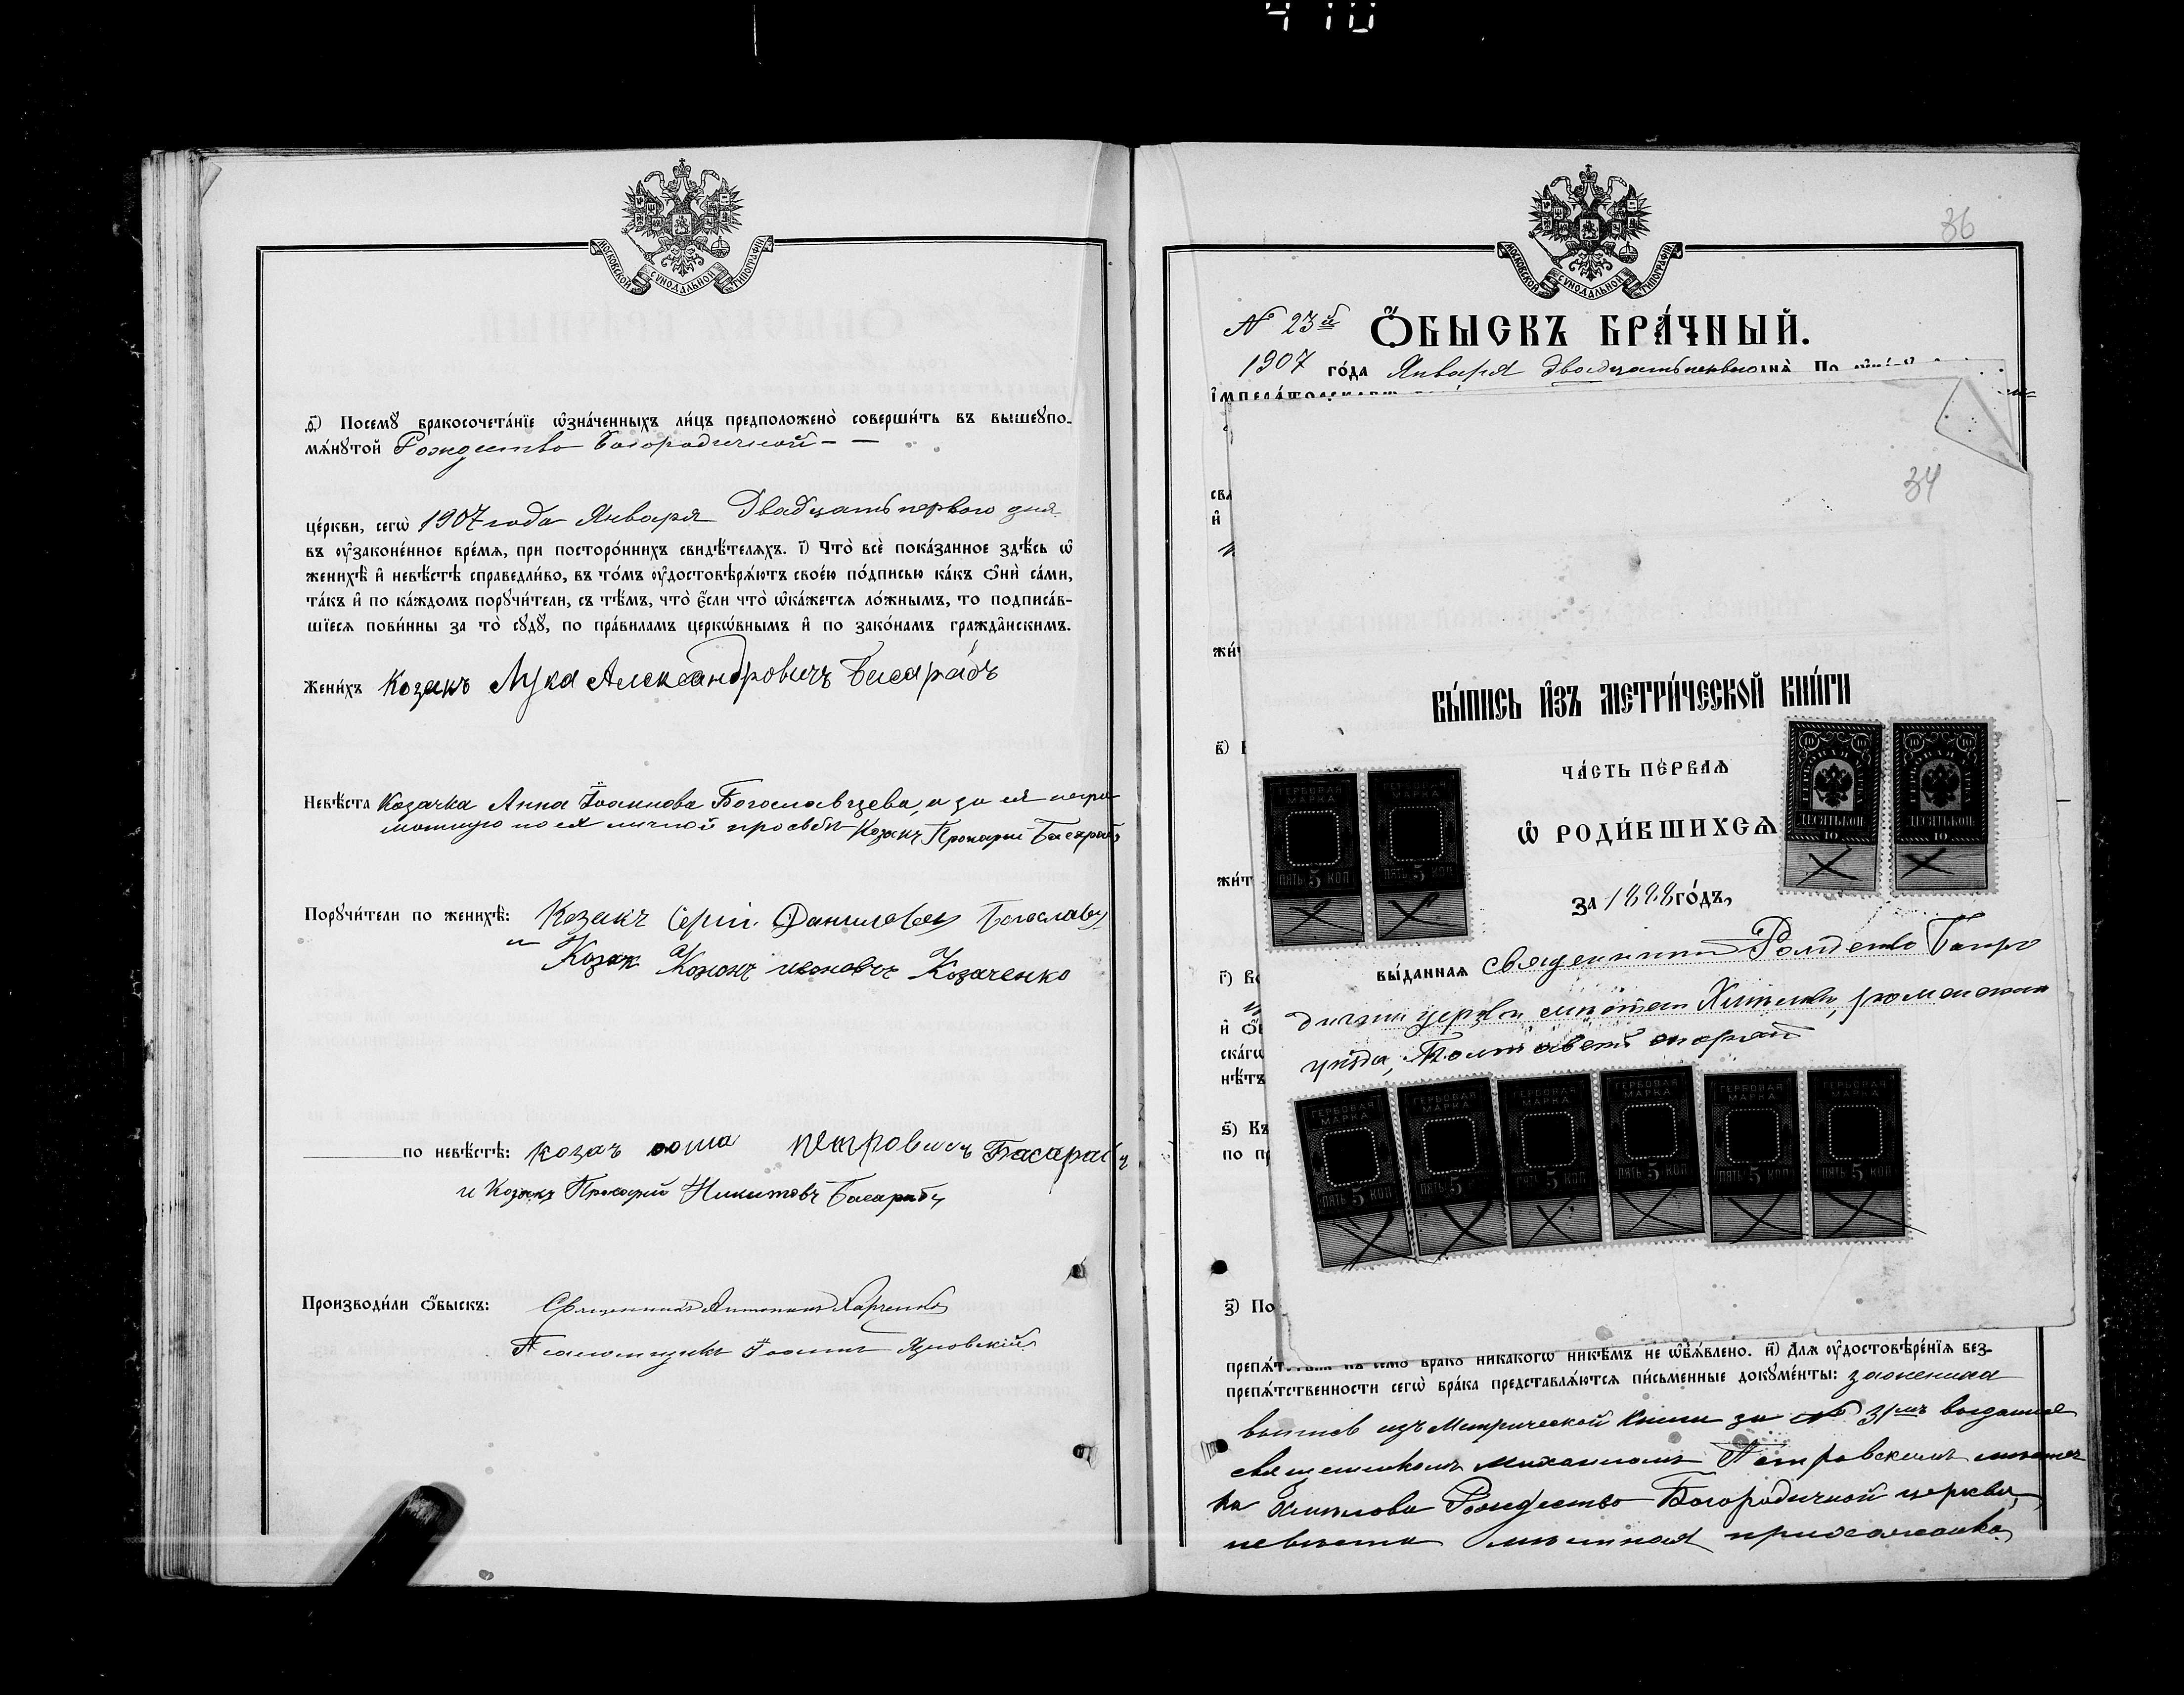 410
МОСКОВСКОЙ СУНОДАЛЬНОЙ ТИПОГРАФІИ
д҃) Посемꙋ бракосочета́нїе ѡ҆зна́ченныхъ ли́цъ предположено̀ соверши́ть въ вышеꙋпо-
мѧ́нꙋтой Рождество Богородичной – –
це́ркви, сегѡ̀ 1907 года Января Двадцать первого дня
въ ᲂу҆законе́нное вре́мѧ, при посторо́ннихъ свидѣ́телѧхъ. і҃) Что̀ всѐ пока́занное здѣ́сь ѡ҆
женихѣ̀ и҆ невѣ́стѣ справедли́во, въ то́мъ ᲂу҆достовѣрѧ́ютъ свое́ю по́дписью ка́къ ѻ҆нѝ са́ми,
та́къ и҆ по ка́ждомъ порꙋчи́тели, съ тѣ́мъ, что̀ є҆́сли что̀ ѡ҆ка́жетсѧ ло́жнымъ, то подписа́в-
шїесѧ пови́нны за то̀ сꙋдꙋ̀, по пра́виламъ церко́внымъ и҆ по зако́намъ гражда́нскимъ.
Жени́хъ Козакъ Лука Александровичъ Басарабъ
Невѣ́ста Козачка Анна Іоаннова Богославцева, а за ея негра
мотную по ея личной просьбѣ Козакъ Прокофій Басарабъ
Порꙋчи́тели по женихѣ̀: Козакъ Сергій Даниловъ Богославец
и Козак Конон Козаченко
по невѣ́стѣ: козакъ фома петровичъ Басарабъ
и Козакъ Прокофій Никитовъ Басарабъ
Производи́ли ѻ҆́быскъ: Священникъ Антоній Харченко
Псаломщикъ Іоаннъ
МОСКОВСКОЙ СУНОДАЛЬНОЙ ТИПОГРАФІИ
36
N 23й Ѻ҆́БЫСКЪ БРА́ЧНЫЙ.
1907 го́да Января Двадцать первого днѧ̀ По
і҆мпера́торскагѡ
34
вы́пись и҆зъ метри́ческой кни́ги
ча́сть пе́рваѧ
ѡ҆ роди́вшихсѧ
за 1888 го́дъ,
вы́даннаѧ священникомъ Рождество Богоро
дичной церкви мѣстеч. Хмѣлова, роменскаго
уѣзда, Полтавской епархіи
ГЕРБОВАЯ МАРКА ПЯТЬ 5 КОП
ГЕРБОВАЯ МАРКА ПЯТЬ 5 КОП
ГЕРБОВАЯ МАРКА 10 ДЕСЯТЬ КОП. 10
ГЕРБОВАЯ МАРКА 10 ДЕСЯТЬ КОП. 10
ГЕРБОВАЯ МАРКА ПЯТЬ 5 КОП
ГЕРБОВАЯ МАРКА ПЯТЬ 5 КОП
ГЕРБОВАЯ МАРКА ПЯТЬ 5 КОП
ГЕРБОВАЯ МАРКА ПЯТЬ 5 КОП
ГЕРБОВАЯ МАРКА ПЯТЬ 5 КОП
ГЕРБОВАЯ МАРКА ПЯТЬ 5 КОП
з҃) По
семꙋ̀ бра́кꙋ никакогѡ̀ никѣ́мъ не ѡ҆б̾ѧ́влено. и҃) Длѧ ᲂу҆достовѣре́нїѧ без-
препѧ́тственности сегѡ̀ бра́ка представлѧ́ютсѧ пи́сьменные докꙋме́нты: жениха
выпись изъ Метрической книги за № 31мъ выданная
священникомъ Михаиломъ Петровскимъ мѣстеч
ка Хмѣлова Рождество Богородичной церкви,
невѣста мѣстная прихожанка.